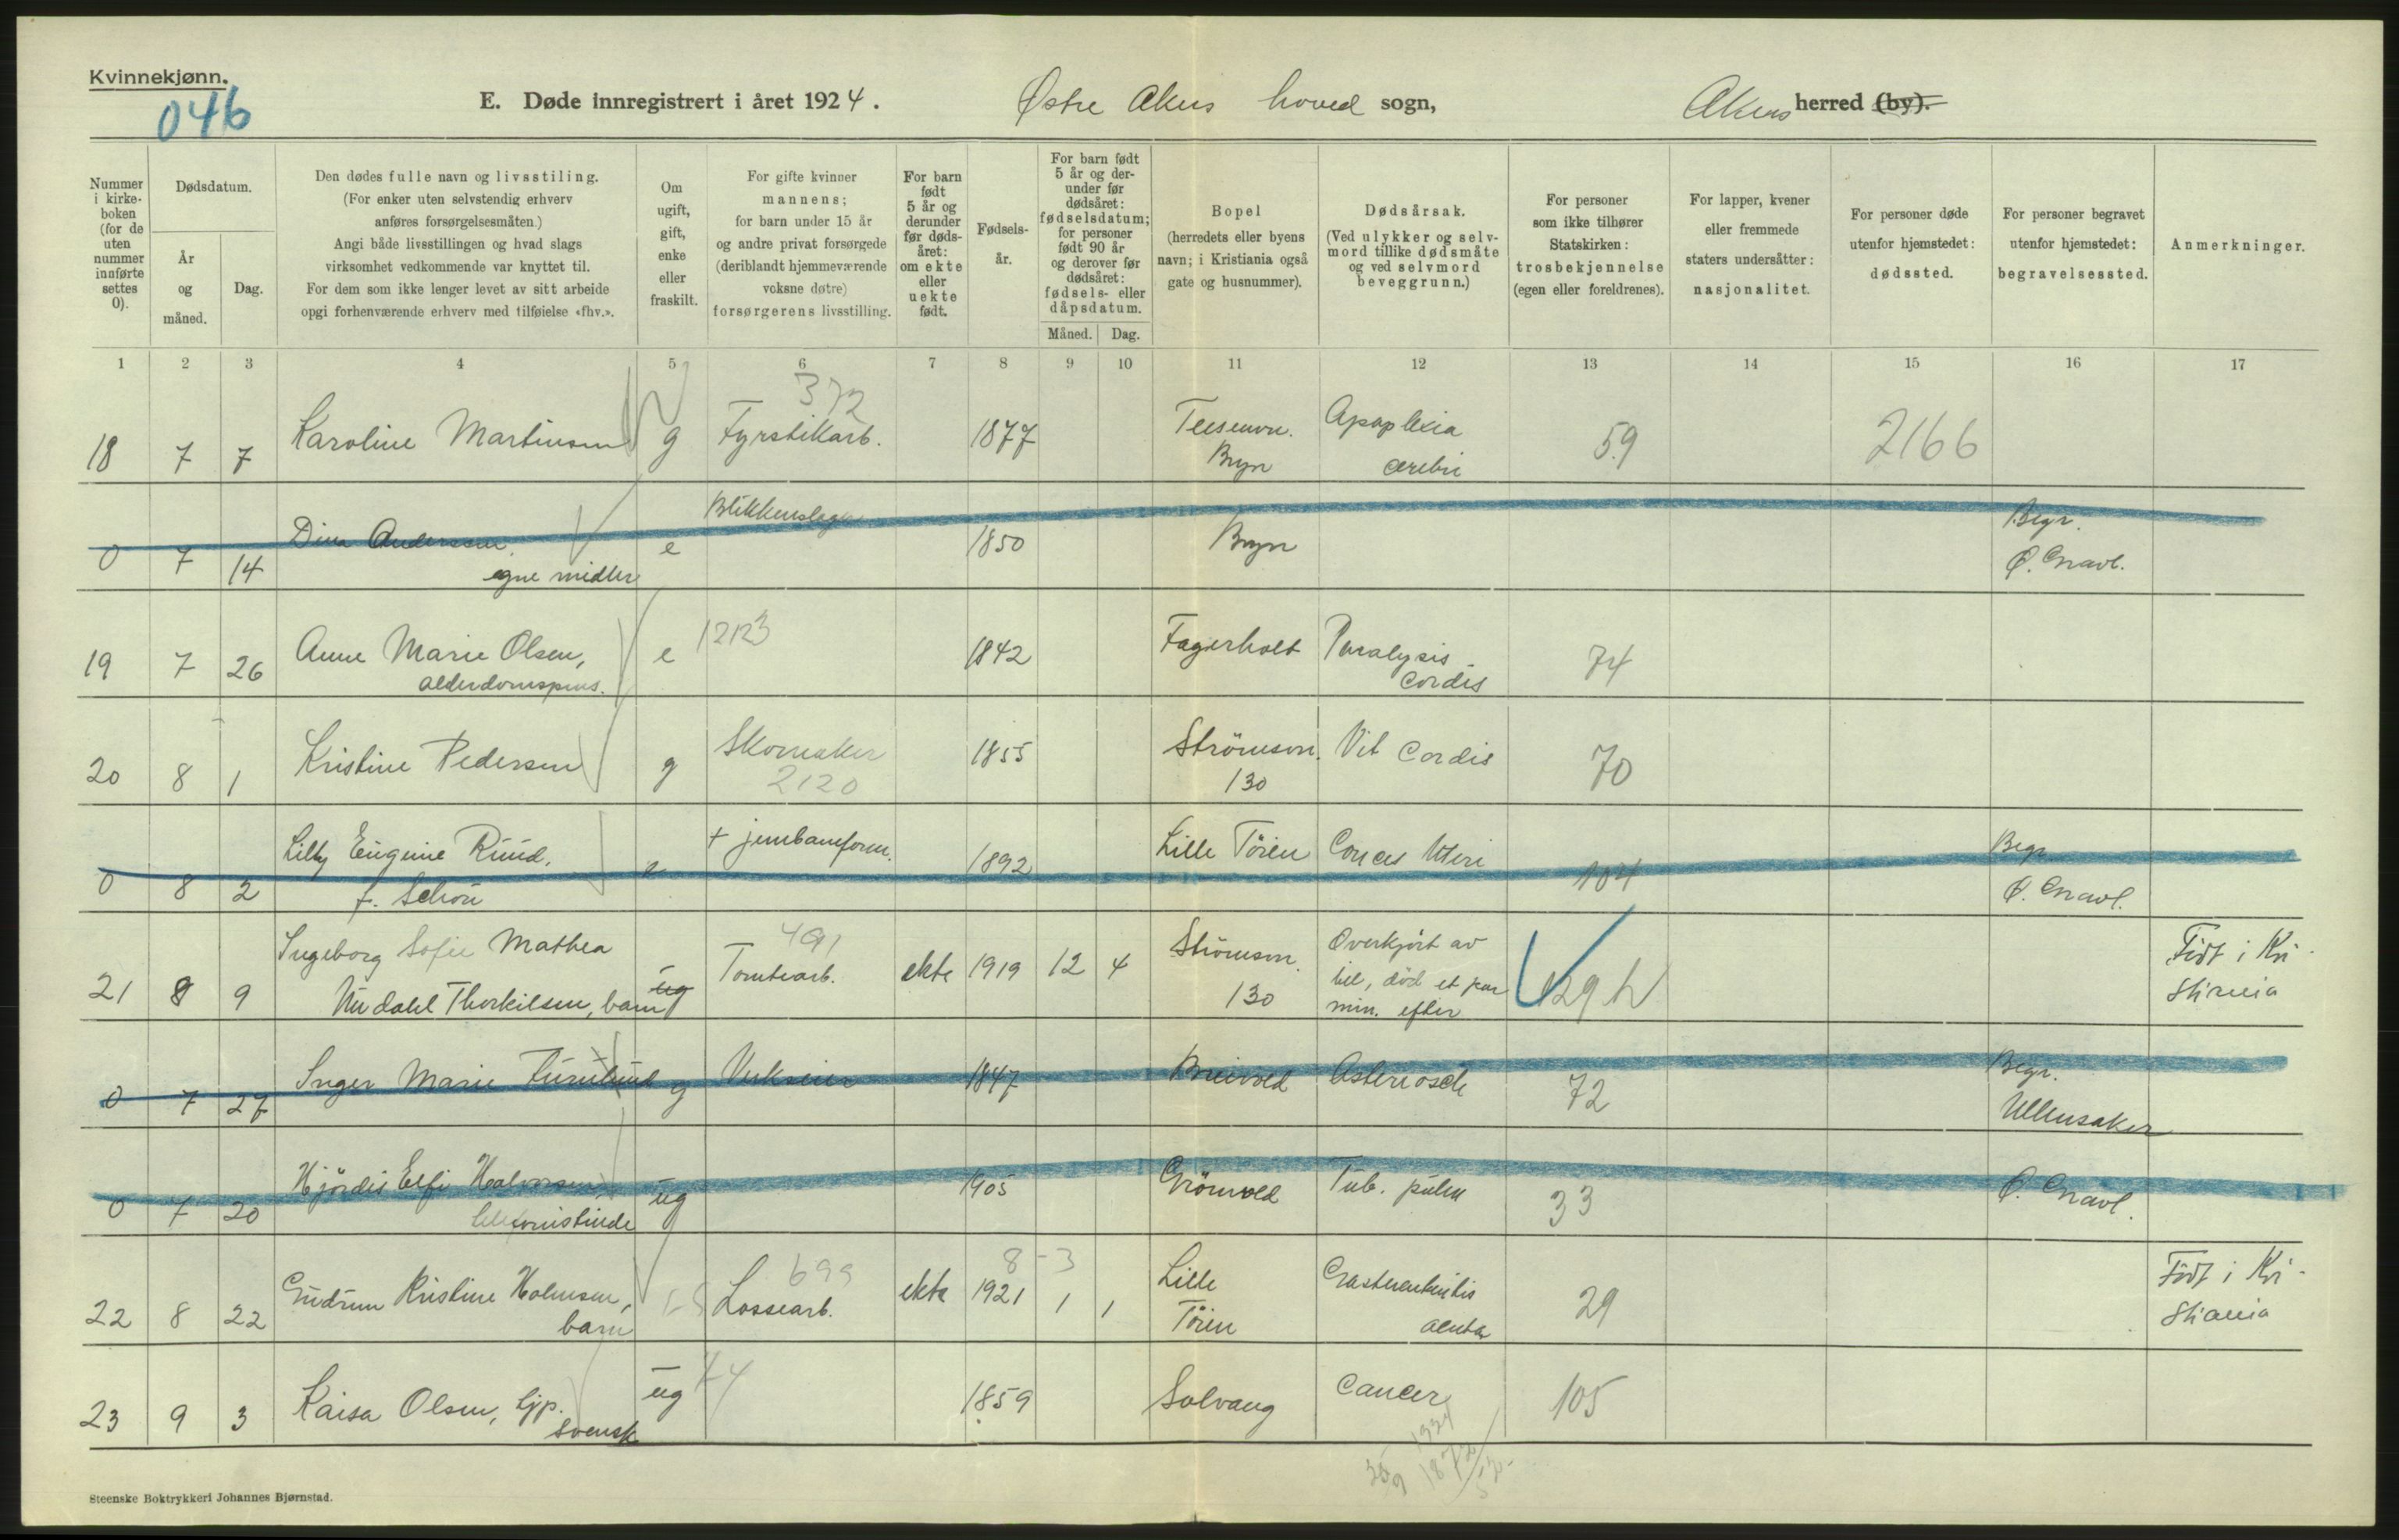 Kvinnekjønn.
046
E. Døde innregistrert i året 1924.
Østre Akers hoved sogn,
Akers herred (by).
Nummer i kirke-boken (for de uten nummer innførte settes 0).
Dødsdatum.
År og måned.
Dag.
Den dødes fulle navn og livsstiling.
(For enker uten selvstendig erhverv
anføres forsørgelsesmåten.)
Angi både livsstillingen og hvad slags
virksomhet vedkommende var knyttet til.
For dem som ikke lenger levet av sitt arbeide
opgi forhenværende erhverv med tilføielse «fhv.».
Om ugift, gift, enke eller fraskilt.
For gifte kvinner
mannens;
for barn under 15 år
og andre privat forsørgede
(deriblandt hjemmeværende
voksne døtre)
forsørgerens livsstilling.
For barn født 5 år og derunder før døds-året: om ekte eller uekte født.
Fødsels-år.
For barn født 5 år og der-under før dødsåret: fødselsdatum; for personer født 90 år og derover før dødsåret: fødsels- eller dåpsdatum.
Måned. Dag.
Bopel
(herredets eller byens
navn; i Kristiania også
gate og husnummer).
Dødsårsak.
(Ved ulykker og selv-
mord tillike dødsmåte
og ved selvmord
beveggrunn.)
For personer
som ikke tilhører
Statskirken:
trosbekjennelse
(egen eller foreldrenes).
For lapper, kvener
eller fremmede
staters undersåtter:
nasjonalitet.
For personer døde
utenfor hjemstedet:
dødssted.
For personer begravet
utenfor hjemstedet:
begravelsessted.
Anmerkninger.
1 2 3 4 5 6 7 8 9 10 11 12 13 14 15 16 17
372
18 7 7 Karoline Martinsen g Fyrstikarb. 1877 Teisenvn. Bryn Apoplexia cerebri 59 2166
0 7 14 Dina Andersen, egne midler e Blikkenslager 1850 Bryn Begr. Ø. Gravl.
19 7 26 Anne Marie Olsen, alderdomspens. e 12123 1842 Fagerholt Paralysis Cordis 74
20 8 1 Kristine Pedersen g Skomaker 2120 1855 Strömsvn. 130 Vit Cordis 70
0 8 2 Lilly Eugenie Ruud, f. Schou e + jernbaneform. 1892 Lille Töien Cancer Uteri 104 Begr. Ø. Gravl.
491
21 8 9 Ingeborg Sofie Mathea Nudahl Thorkilsen, barn ug Tomtearb. ekte 1919 12 4 Strömsvn. 130 Overkjört av bil, död et par min. efter 129 h Födt i Kristiania
0 7 27 Inger Marie Furulund g Verkseier 1847 Breivold Asteriosch 72 Begr. Ullensaker
0 7 20 Hjördis Elfi Halvorsen, telefonistinde ug 1905 Grönvold Tub. pulm 33 Ø. Gravl.
699
8-3
22 8 22 Gudrun Kristine Holmsen, barn Lossearb. ekte 1921 1 1 Lille Töien Gasterenteritis acuta 29 Födt i Kristiania
23 9 3 Kaisa Olsen, hjp. svensk ug 44 1859 Solvang Cancer 105
Steenske Boktrykkeri Johannes Bjørnstad.